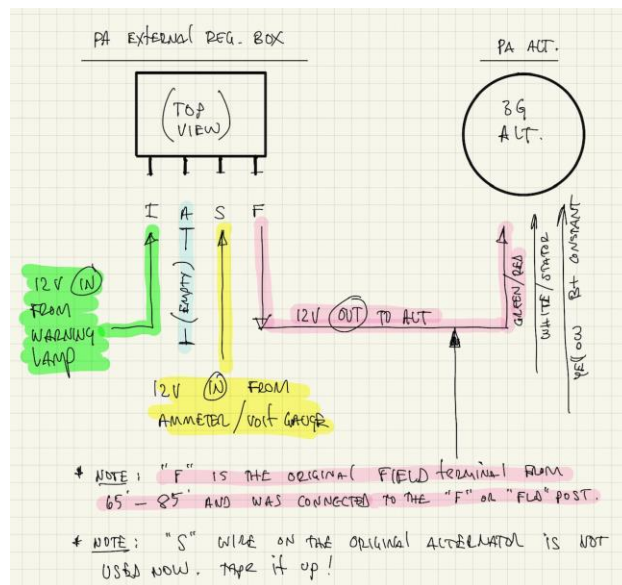 PA EXTERNAL REG. BOX
PA ALT.
(TOP
VIEW)
3G
ALT.
I A S F
(EMPTY)
12V IN
FROM
WARNING
LAMP
12V OUT TO ALT
GREEN/RED
WHITE/STATOR
YELLOW B+ CONSTANT
12V IN FROM
AMMETER/VOLT GAUGE
* NOTE: "F" IS THE ORIGINAL FIELD TERMINAL FROM
65' - 85' AND WAS CONNECTED TO THE "F" OR "FLD" POST.
* NOTE: "S" WIRE ON THE ORIGINAL ALTERNATOR IS NOT
USED NOW. TAPE IT UP!